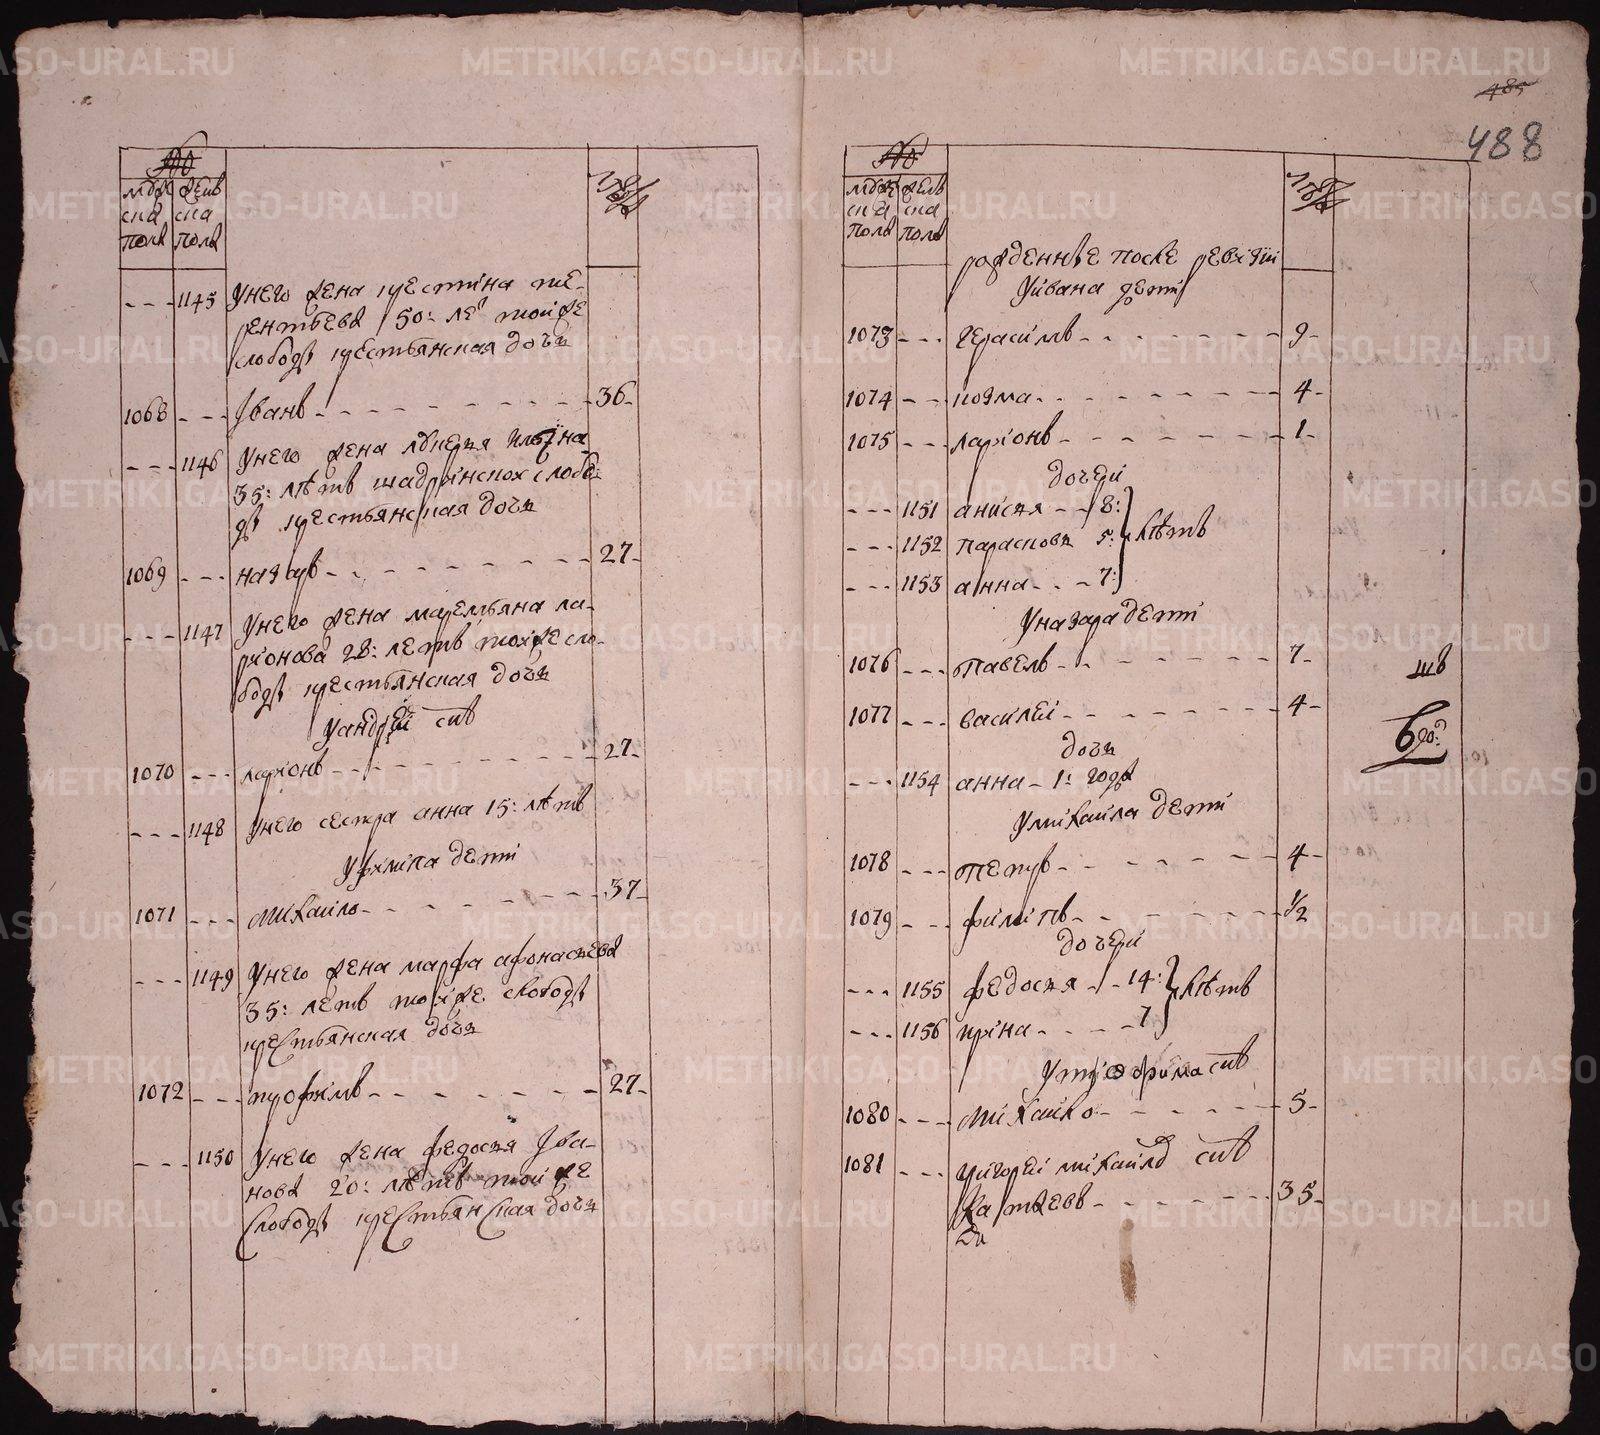 METRIKI.GASO-URAL.RU
485
488
№
мужеска полу
женска полу
лѣта
1145 У него жена крестина те-
рентьева 50: ле тои же
слободы крестьянская дочь
1068 Іванъ 36
1146 У него жена лукерья ильина
35: лѣтъ шадринскои слобо-
ды крестьянская дочь
1069 назаръ 27
1147 У него жена маремьяна ла-
рионова 28: летъ тои же сло-
боды крестьянская дочь
У андрея снъ
1070 ларионъ 27
1148 У него сестра анна 15: лѣтъ
У филипа дети
1071 михаило 37
1149 У него жена марфа афонасьева
35: летъ тои же слободы
крестьянская дочь
1072 трофимъ 27
1150 У него жена федосья Ива-
нова 20: лѣтъ тои же
слободы крестьянская дочь
№
мужеска полу
женска полу
лѣта
рожденные после ревизии
У ивана дети
1073 герасимъ 9
1074 козма 4
1075 ларионъ 1
дочери
1151 анисья 8:
1152 парасковья 5: лѣтъ
1153 анна 7:
У назара дети
1076 павелъ 7
1077 василеи 4
дочь
1154 анна 1: года
У михаила дети
1078 петръ 4
1079 филипъ 1/2
дочери
1155 федосья 14: лѣтъ
1156 ирина 7
У трофима снъ
1080 михаило 5
1081 григореи михаиловъ снъ
35